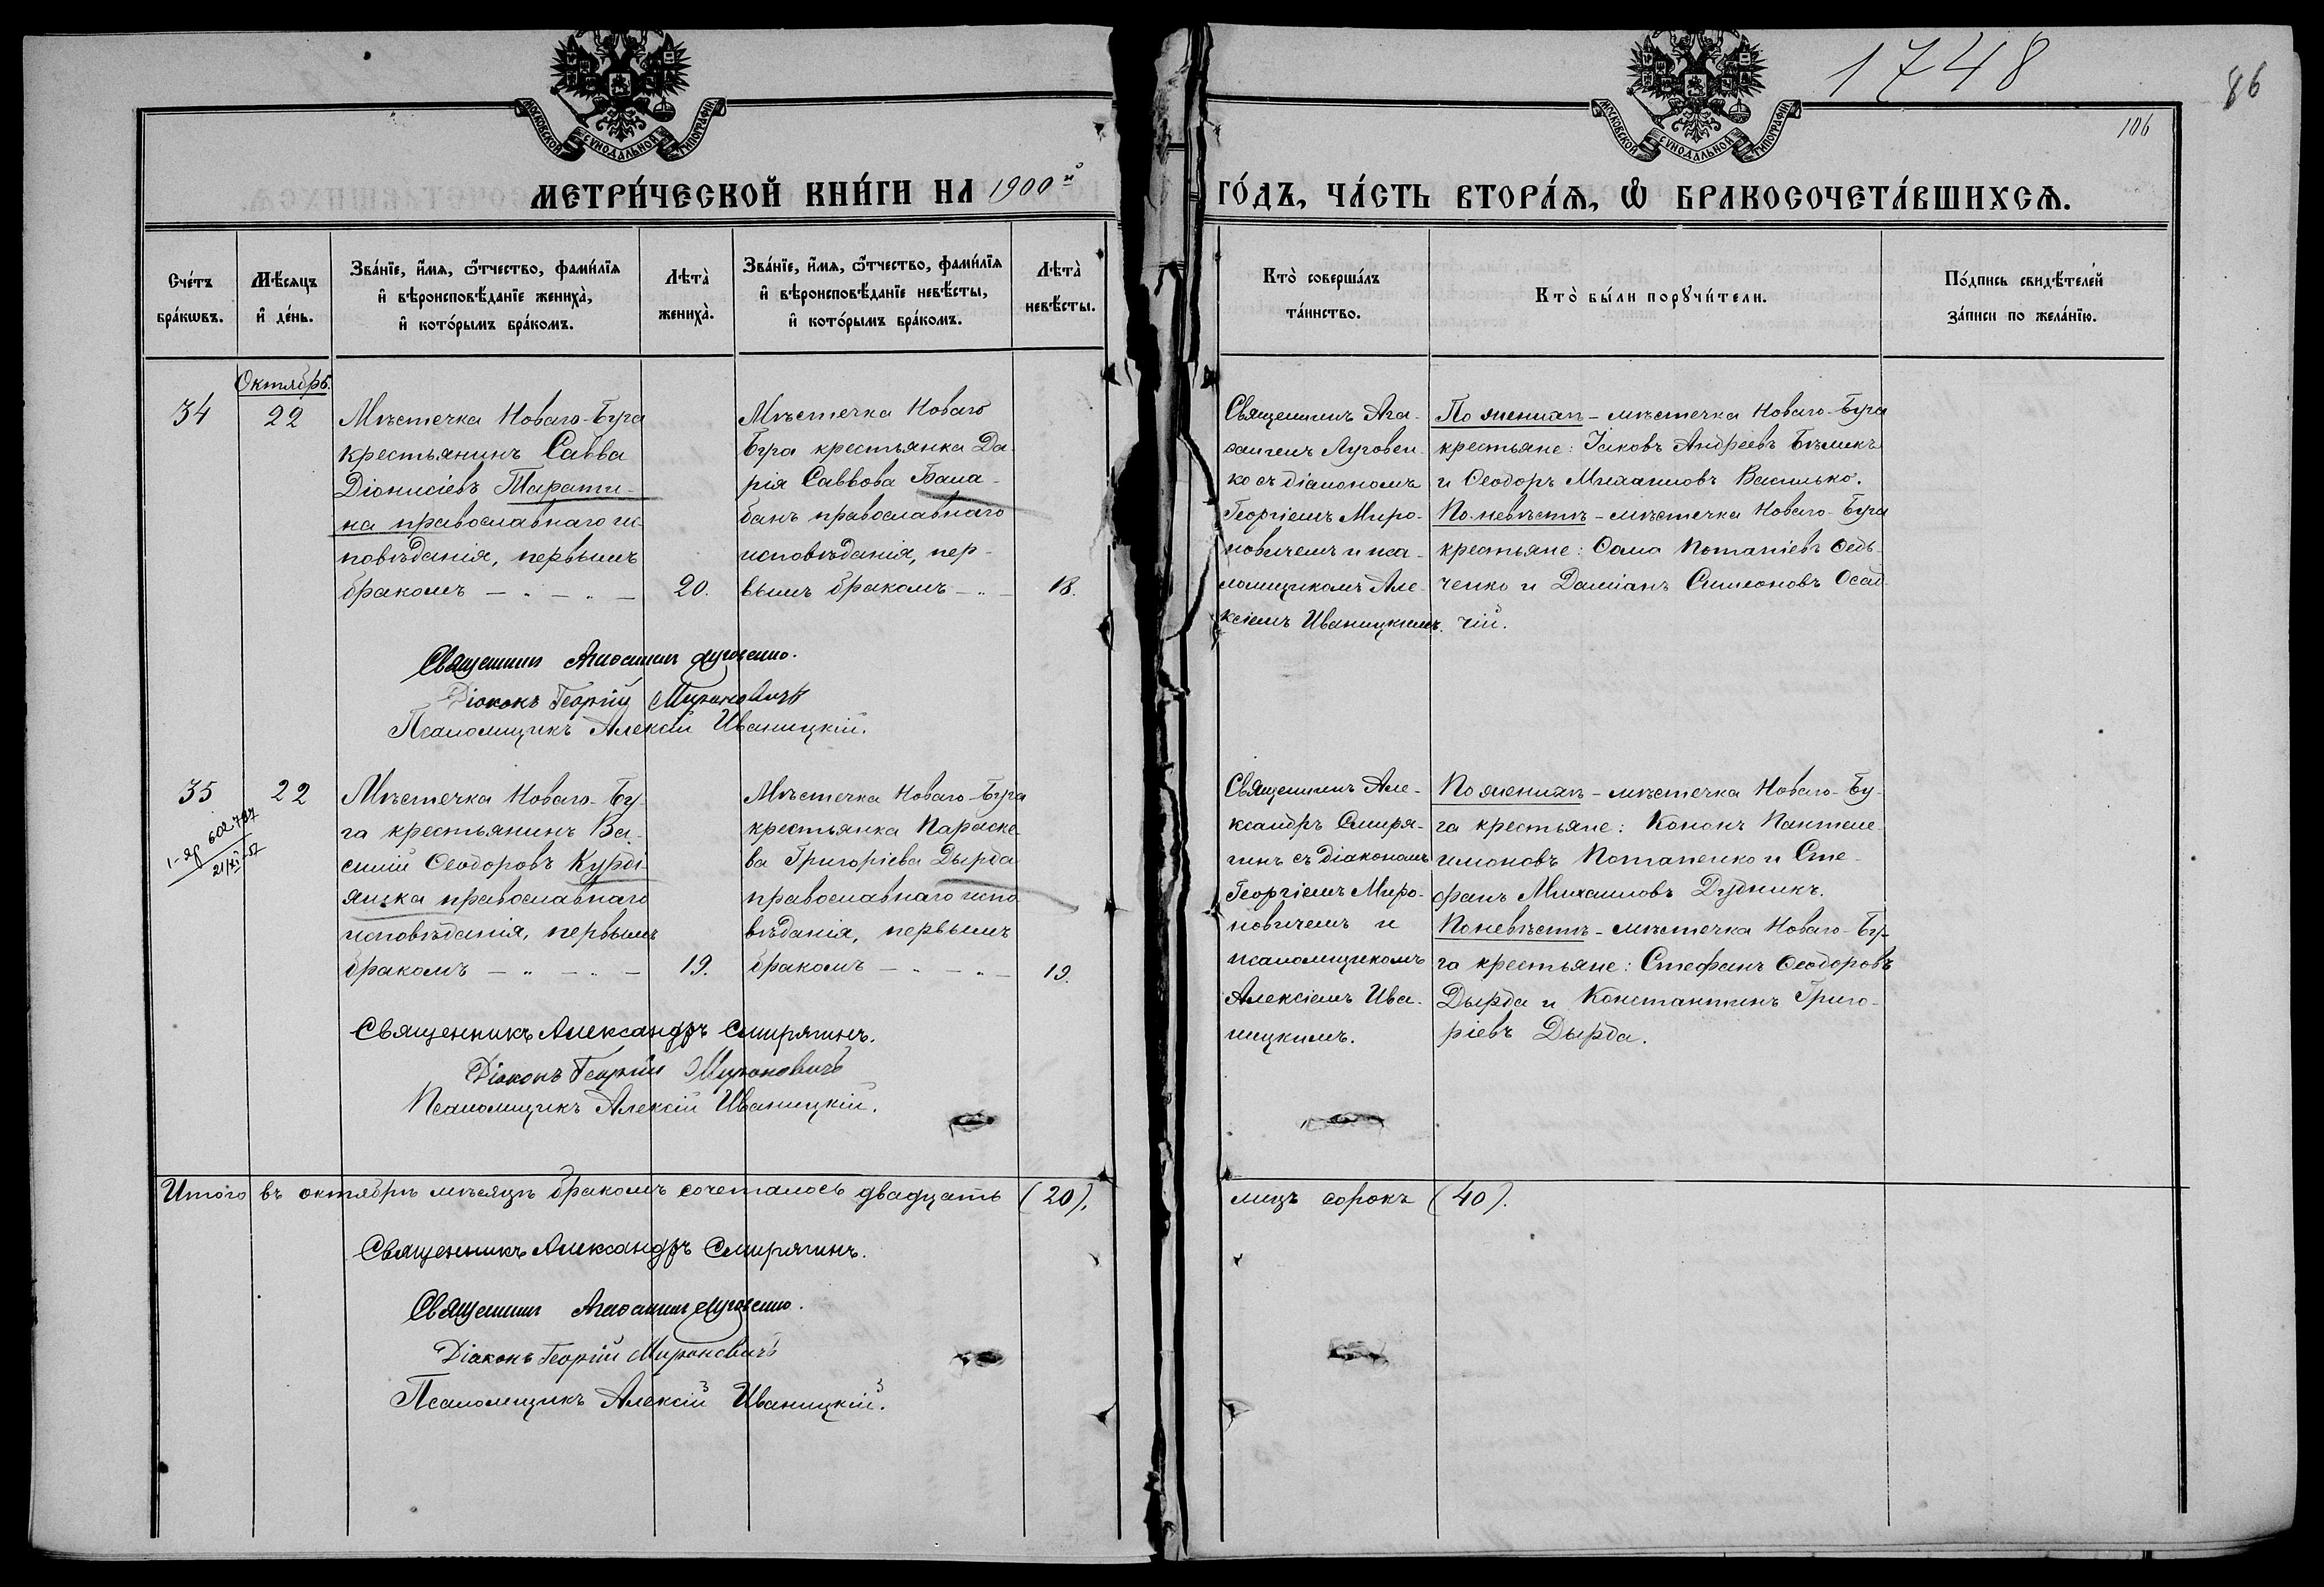 1748
86
106
МОСКОВСКОЙ СУНОДАЛЬНОЙ ТИПОГРАФІИ
МОСКОВСКОЙ СУНОДАЛЬНОЙ ТИПОГРАФІИ
МЕТРИ́ЧЕСКОЙ КНИ́ГИ НА 1900й ГО́ДЪ, ЧА́СТЬ ВТОРА́Ѧ, Ѡ҆ БРАКОСОЧЕТА́ВШИХСѦ.
Сче́тъ
бра́кѡвъ.
Мѣ́сяцъ
и҆ де́нь.
Зва́нїе, и҆́мя, ѻ҆́тчество, фами́лїя
и҆ вѣроисповѣ́данїе жениха̀,
и҆ кото́рымъ бра́комъ.
Лѣта̀
жениха̀.
Зва́нїе, и҆́мя, ѻ҆́тчество, фами́лїя
и҆ вѣроисповѣ́данїе невѣ́сты,
и҆ кото́рымъ бра́комъ.
Лѣта̀
невѣ́сты.
Кто̀ соверша́лъ
та́инство.
Кто̀ бы́ли порꙋчи́тели.
По́дпись свидѣ́телей
за́писи по жела́нїю.
Октябрь.
34
22
Мѣстечка Новаго-Буга
крестьянинъ Савва
Діонисіевъ Тарати-
на православнаго ис-
повѣданія, первымъ
бракомъ — „ — „ —
20.
Мѣстечка Новаго
Буга крестьянка Да-
рія Саввова Бала-
банъ православнаго
исповѣданія, пер-
вымъ бракомъ — „ —
18.
Священникъ Ага-
ѳангелъ Луговен-
ко съ діакономъ
Георгіемъ Миро-
новичемъ и пса-
ломщикомъ Але-
ксіемъ Иваницкимъ.
По женихѣ - мѣстечка Новаго-Буга
крестьяне: Іаковъ Андреевъ Бѣликъ
и Ѳеодоръ Михаиловъ Василько.
По невѣстѣ - мѣстечка Новаго-Буга
крестьяне: Ѳома Потапіевъ Ѳедь-
ченко и Даміанъ Симеоновъ Осад-
чій.
Священникъ Агаѳангелъ Луговенко.
Діаконъ Георгій Мироновичъ
Псаломщикъ Алексій Иваницкій.
35
22
602727
21/XI-52
Мѣстечка Новаго-Бу-
га крестьянинъ Ва-
силій Ѳеодоровъ Курді-
яшка православнаго
исповѣданія, первымъ
бракомъ — „ — „ —
19.
Мѣстечка Новаго-Буга
крестьянка Параске-
ва Григоріева Дырда
православнаго испо-
вѣданія, первымъ
бракомъ — „ — „ —
19.
Священникъ Але-
ксандръ Смиря-
гинъ съ діакономъ
Георгіемъ Миро-
новичемъ и
псаломщикомъ
Алексіемъ Ива-
ницкимъ.
По женихѣ - мѣстечка Новаго-Бу-
га крестьяне: Кононъ Пантеле-
имоновъ Потапенко и Сте-
фанъ Михаиловъ Дудникъ.
По невѣстѣ - мѣстечка Новаго-Бу-
га крестьяне: Стефанъ Ѳеодоровъ
Дырда и Константинъ Григо-
ріевъ Дырда.
Священникъ Александръ Смирягинъ.
Діаконъ Георгій Мироновичъ
Псаломщикъ Алексій Иваницкій.
Итого въ октябрѣ мѣсяцѣ бракомъ сочеталось двадцать (20), лицъ сорокъ (40).
Священникъ Александръ Смирягинъ.
Священникъ Агаѳангелъ Луговенко.
Діаконъ Георгій Мироновичъ
Псаломщикъ Алексій Иваницкій.